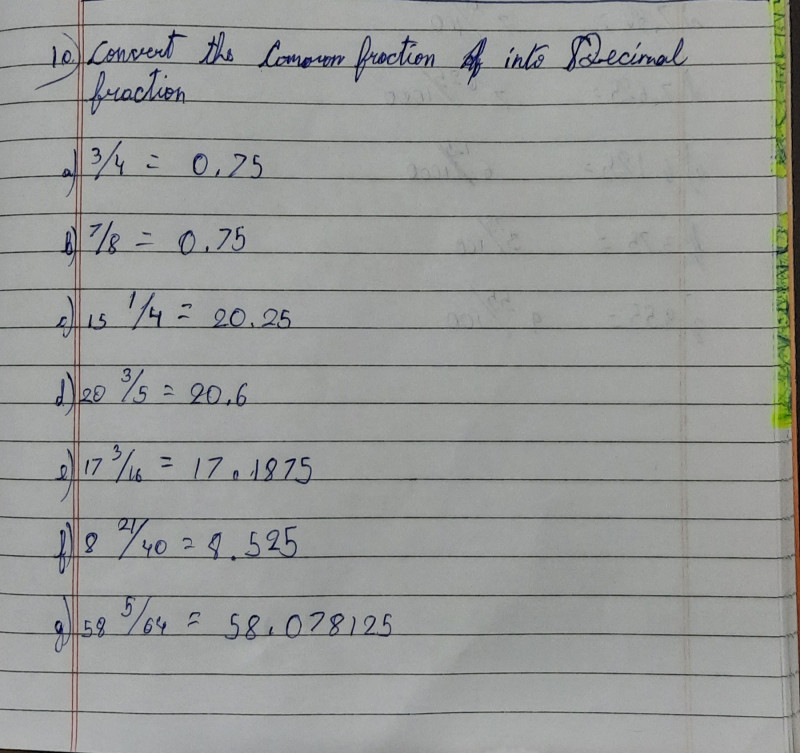 10) Convert the Common fraction into Decimal
fraction
a) 3/4 = 0.75
b) 7/8 = 0.75
c) 15 1/4 = 20.25
d) 20 3/5 = 20.6
e) 17 3/16 = 17.1875
f) 8 21/40 = 8.525
g) 58 5/64 = 58.078125